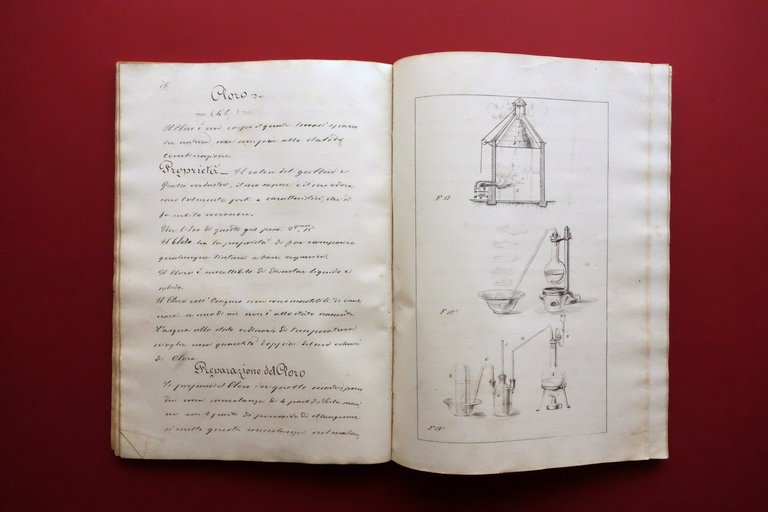 Cloro
(Cl.)
Il Cloro è un corpo il quale trovasi sparso
in natura ma sempre allo stato di
Combinazione.
Proprietà _ Il colore del gas Cloro è
giallo verdastro, il suo sapore e il suo odore
sono talmente forti e caratteristici, che si
fa subito conoscere.
Un litro di questo gas pesa
Il Cloro ha la proprietà di far scomparire
qualunque tintura a base organica.
Il Cloro è suscettibile di diventar liquido e
solido.
Il Cloro col'Ossigeno non sono suscettibili di com
se uno di essi non è allo stato nascente
L'acqua allo stato ordinario di temperatura
scioglie una quantità doppia del suo volume
di Cloro.
Preparazione del Cloro
Si prepara il Cloro in questo modo: si pren
de una mescolanza di 4 parti di Sale mari
no con 2 parti di perossido di Manganese
si mette questa mescolanza nel matrac
Fa 17
Fa 18a
Fa 19a